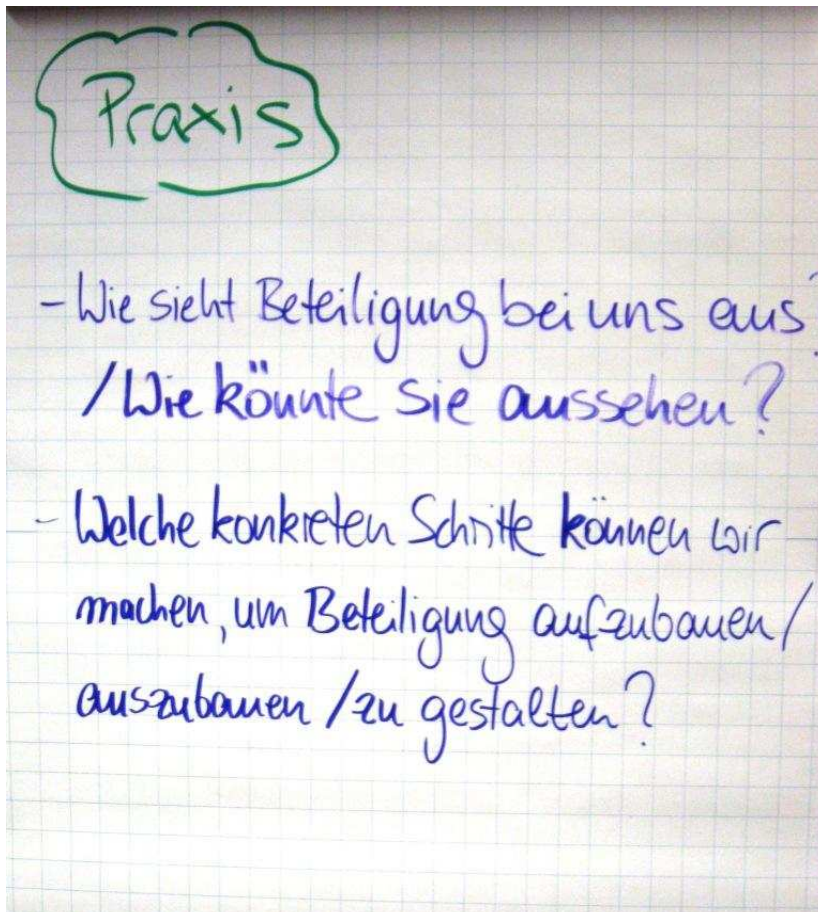 Praxis
- Wie sieht Beteiligung bei uns aus?
/ Wie könnte sie aussehen?
- Welche konkreten Schritte können wir
machen, um Beteiligung aufzubauen /
auszubauen / zu gestalten?